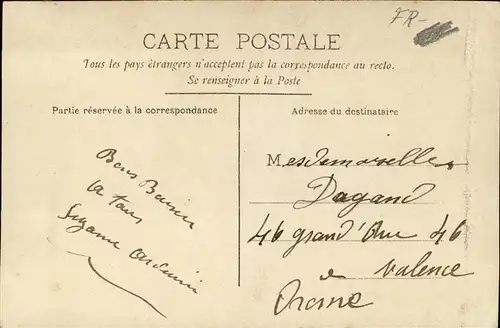 FR-
CARTE POSTALE
Tous les pays étrangers n'acceptent pas la correspondance au recto.
Se renseigner à la Poste
Partie réservée à la correspondance
Adresse du destinataire
Bons Baisers
a tous
Suzanne
Mesdemoiselles
Dagand
46 grand'Rue 46
a Valence
Drome